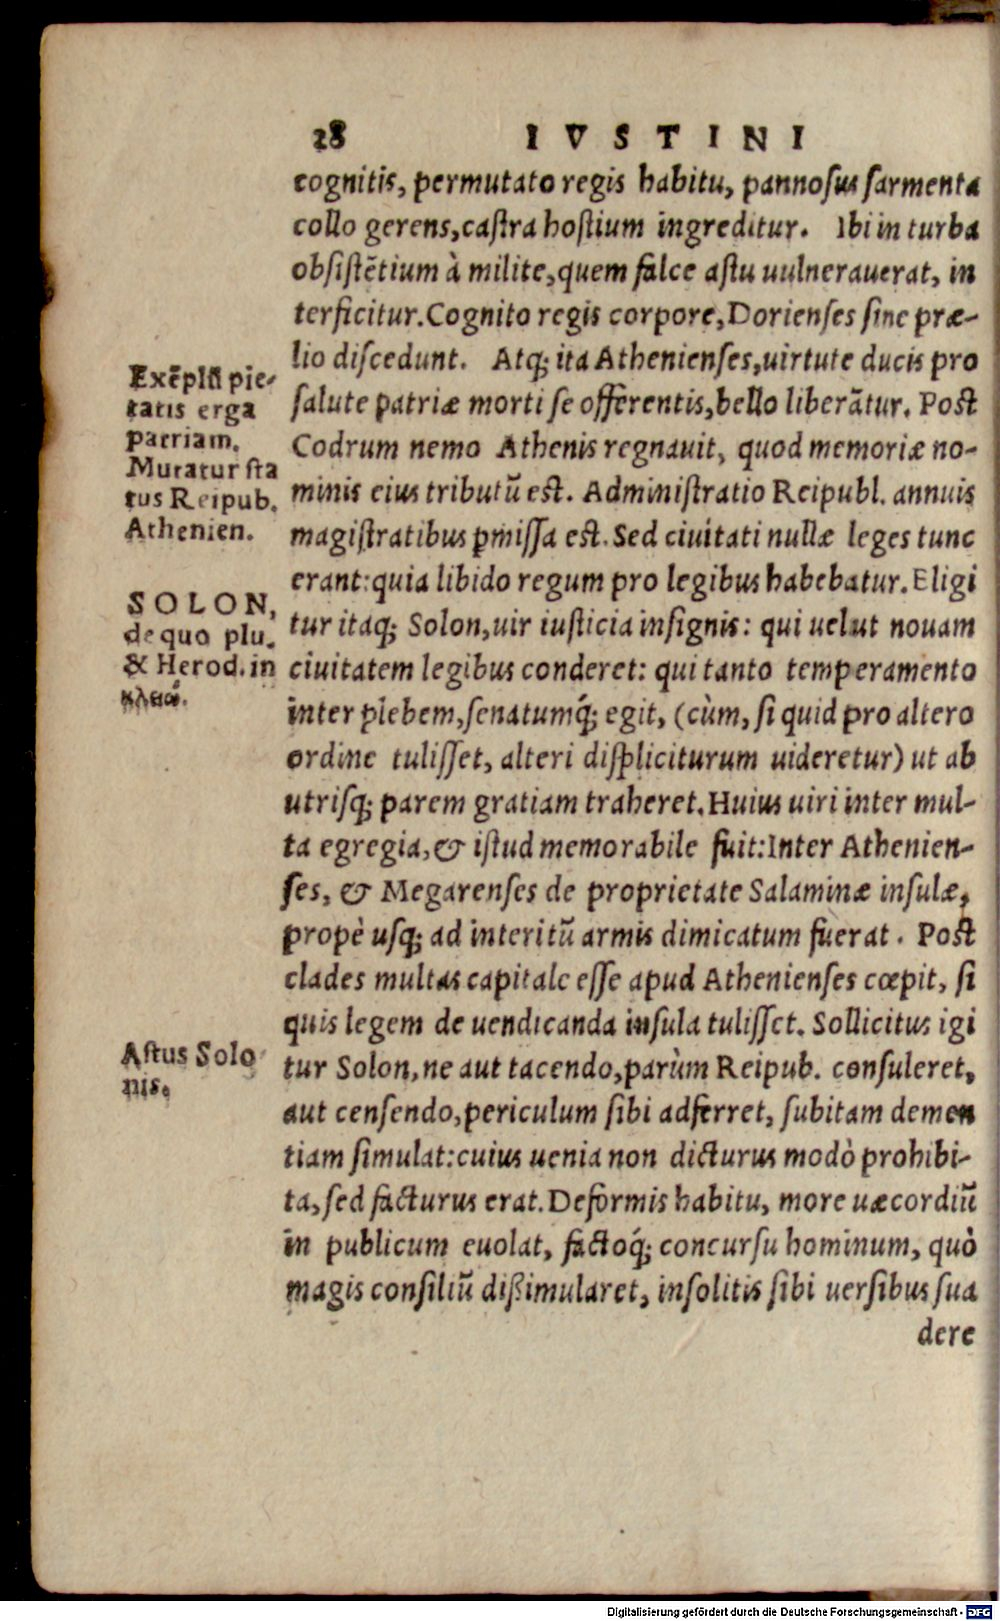 28 IVSTINI
cognitis, permutato regis habitu, pannosus sarmenta
collo gerens, castra hostium ingreditur. Ibi in turba
obsistẽtium à milite, quem falce astu uulnerauerat, in
terficitur. Cognito regis corpore, Dorienses sine præ-
lio discedunt. Atq; ita Athenienses, uirtute ducis pro
salute patriæ morti se offerentis, bello liberãtur. Post
Codrum nemo Athenis regnauit, quod memoriæ no-
minis eius tributũ est. Administratio Reipubl. annuis
magistratibus ꝑmissa est. Sed ciuitati nullæ leges tunc
erant: quia libido regum pro legibus habebatur. Eligi
tur itaq; Solon, uir iusticia insignis: qui uelut nouam
ciuitatem legibus conderet: qui tanto temperamento
inter plebem, senatumq́; egit, (cùm, si quid pro altero
ordine tulisset, alteri displiciturum uideretur) ut ab
utrisq; parem gratiam traheret. Huius uiri inter mul-
ta egregia, & istud memorabile fuit: Inter Athenien-
ses, & Megarenses de proprietate Salaminæ insulæ,
propè usq; ad interitũ armis dimicatum fuerat. Post
clades multas capitale esse apud Athenienses cœpit, si
quis legem de uendicanda insula tulisset. Sollicitus igi
tur Solon, ne aut tacendo, parùm Reipub. consuleret,
aut censendo, periculum sibi adferret, subitam demen
tiam simulat: cuius uenia non dicturus modò prohibi-
ta, sed facturus erat. Deformis habitu, more uæcordiũ
in publicum euolat, factoq́; concursu hominum, quò
magis consiliũ dißimularet, insolitis sibi uersibus sua
dere
Exẽplũ pie-
tatis erga
patriam.
Mutatur sta
tus Reipub.
Athenien.
SOLON,
de quo plu.
& Herod. in
Astus Solo
nis.
Digitalisierung gefördert durch die Deutsche Forschungsgemeinschaft - DFG